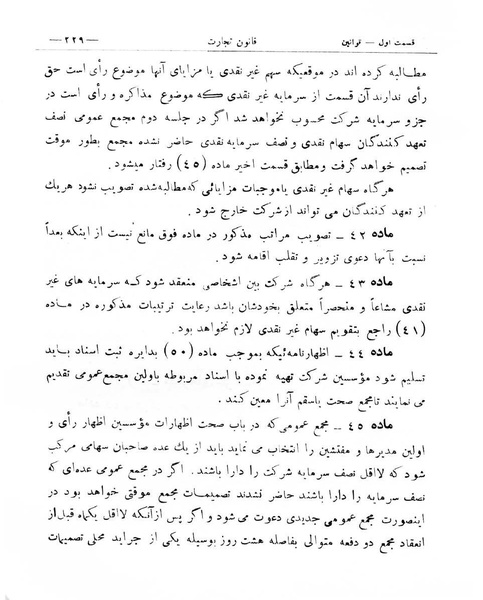 قسمت اول — قوانین
قانون تجارت
— ۲۲۹ —
مطالبه کرده اند در موقعیکه سهم غیر نقدی یا مزایای آنها موضوع رأی است حق
رأی ندارند آن قسمت از سرمایه غیر نقدی که موضوع مذاکره و رأی است در
جزو سرمایه شرکت محسوب نخواهد شد اگر در جلسه دوم مجمع عمومی نصف
تعهد کنندگان سهام نقدی و نصف سرمایه نقدی حاضر نشده مجمع بطور موقت
تصمیم خواهد گرفت ومطابق قسمت اخیر ماده (٤٥) رفتار میشود.
هرگاه سهام غیر نقدی یاموجبات مزایائی که‌مطالبه‌شده تصویب نشود هریك
از تعهد کنندگان می تواند از شرکت خارج شود.
ماده ٤٢ ـ تصویب مراتب مذکور در ماده فوق مانع نیست از اینکه بعداً
نسبت بآنها دعوی تزویر و تقلب اقامه شود.
ماده ٤٣ ـ هرگاه شرکت بین اشخاصی منعقد شود که سرمایه های غیر
نقدی مشاعاً و منحصراً متعلق بخودشان باشد رعایت ترتیبات مذکوره در ماده
(٤١) راجع بتقویم سهام غیر نقدی لازم نخواهد بود.
ماده ٤٤ ـ اظهارنامه‌ئیکه بموجب ماده (٥٠) بدایره ثبت اسناد باید
تسلیم شود مؤسسین شرکت تهیه نموده با اسناد مربوطه باولین مجمع‌عمومی تقدیم
می نمایند تامجمع صحت یاسقم آنرا معین کند.
ماده ٤٥ ـ مجمع عمومی که در باب صحت اظهارات مؤسسین اظهار رأی و
اولین مدیرها و مفتشین را انتخاب می نماید باید از یك عده صاحبان سهامی مرکب
شود که لااقل نصف سرمایه شرکت را دارا باشند. اگر در مجمع عمومی عده‌ای که
نصف سرمایه را دارا باشند حاضر نشدند تصمیمات مجمع موقتی خواهد بود در
اینصورت مجمع عمومی جدیدی دعوت می‌شود و اگر پس ازآنکه لااقل یکماه قبل‌از
انعقاد مجمع دو دفعه متوالی بفاصله هشت روز بوسیله یکی از جراید محلی تصمیمات